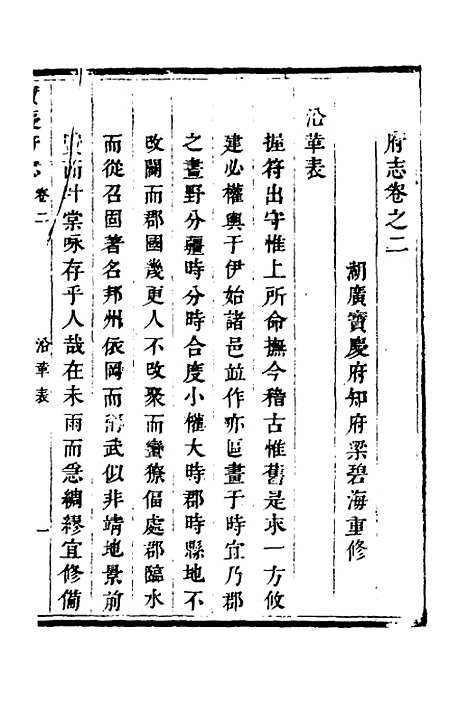 府志卷之二
湖廣寶慶府知府梁碧海重修
沿革表
握符出守惟上所命撫今稽古惟舊是求一方攸
建必權輿于伊始諸邑並作亦區畫于時宜乃郡
之晝野分疆時分時合度小僅大時郡時縣地不
改闢而郡國幾更人不改聚而蠻獠偪處郡臨水
而從召固著名邦州依岡而 武似非靖地景前
 而甘棠咏存乎人哉在未雨而急綢繆宜修備
寶慶府志 卷二 沿革表 一